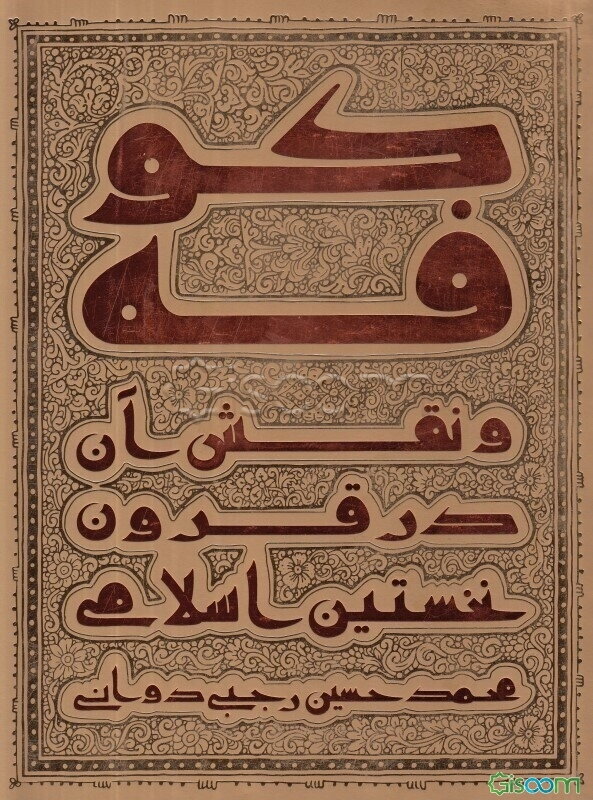 کو
فه
و نقش آن
در قرون
نخستین اسلامی
محمدحسین رجبی دوانی
Gisoom